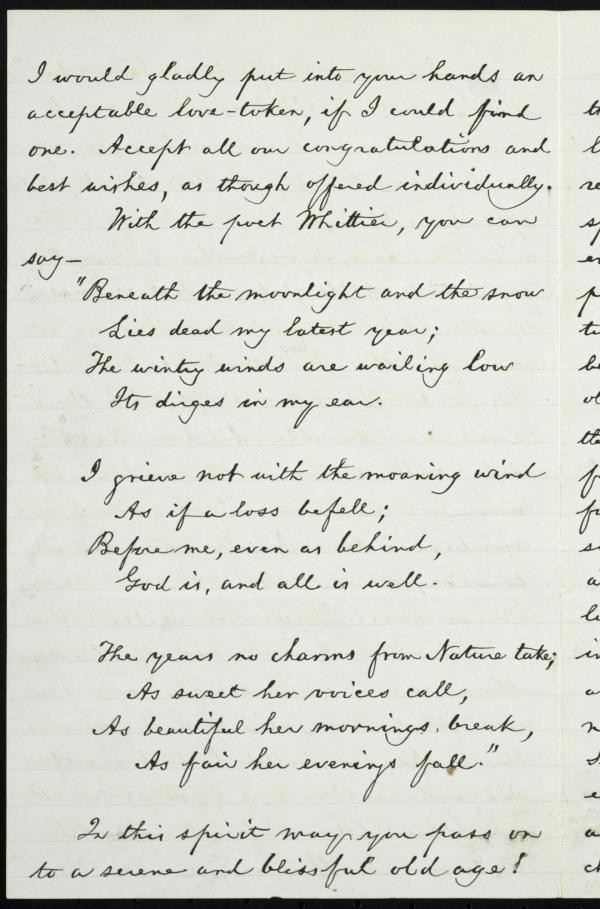 I would gladly put into your hands an
acceptable love-token, if I could find
one. Accept all our congratulations and
best wishes, as though offered individually.
With the poet Whittier, you can
say—
"Beneath the moonlight and the snow
Lies dead my latest year;
The wintry winds are wailing low
Its dirges in my ear.
I grieve not with the moaning wind
As if a loss befell;
Before me, even as behind,
God is, and all is well.
The years no charms from Nature take;
As sweet her voices call,
As beautiful her mornings break,
As fair her evenings fall."
In this spirit may you pass on
to a serene and blissful old age!